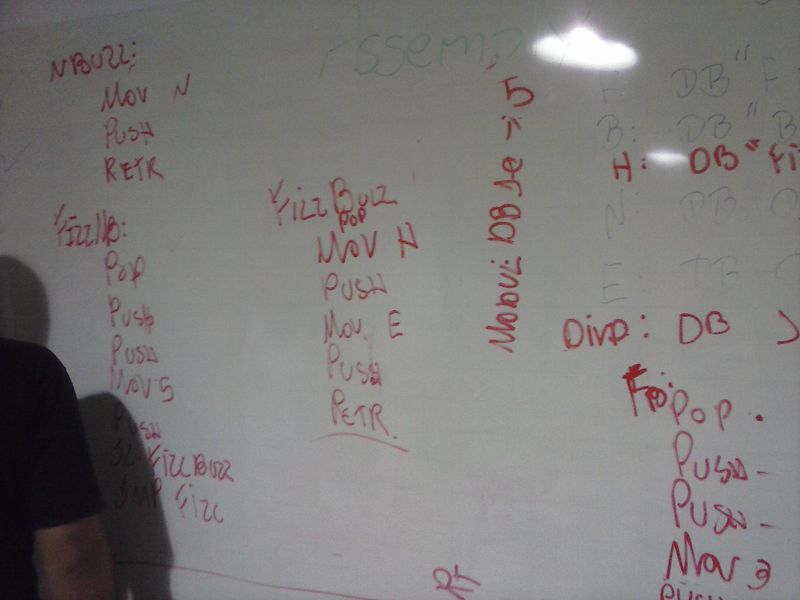 Assem
NBUZZ:
MOV N
PUSH
RETR
FizzNB:
POP
PUSH
PUSH
MOV 5
PUSH
JZ FizzBuzz
JMP Fizz
FizzBuzz
POP
MOV H
PUSH
MOV E
PUSH
RETR.
5
F: DB "F
B: DB "B
H: DB "Fi
N: DB
E: DB
DivD: DB
POP .
PUSH -
PUSH -
MOV 3
PUSH